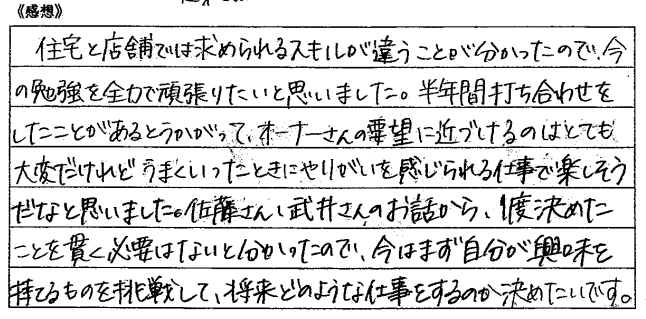 《感想》
住宅と店舗では求められるスキルが違うことが分かったので、今
の勉強を全力で頑張りたいと思いました。半年間打ち合わせを
したことがあるとうかがって、オーナーさんの要望に近づけるのはとても
大変だけれどうまくいったときにやりがいを感じられる仕事で楽しそう
だなと思いました。佐藤さん、武井さんのお話から、1度決めた
ことを貫く必要はないと分かったので、今はまず自分が興味を
持てるものを挑戦して、将来どのような仕事をするのか決めたいです。